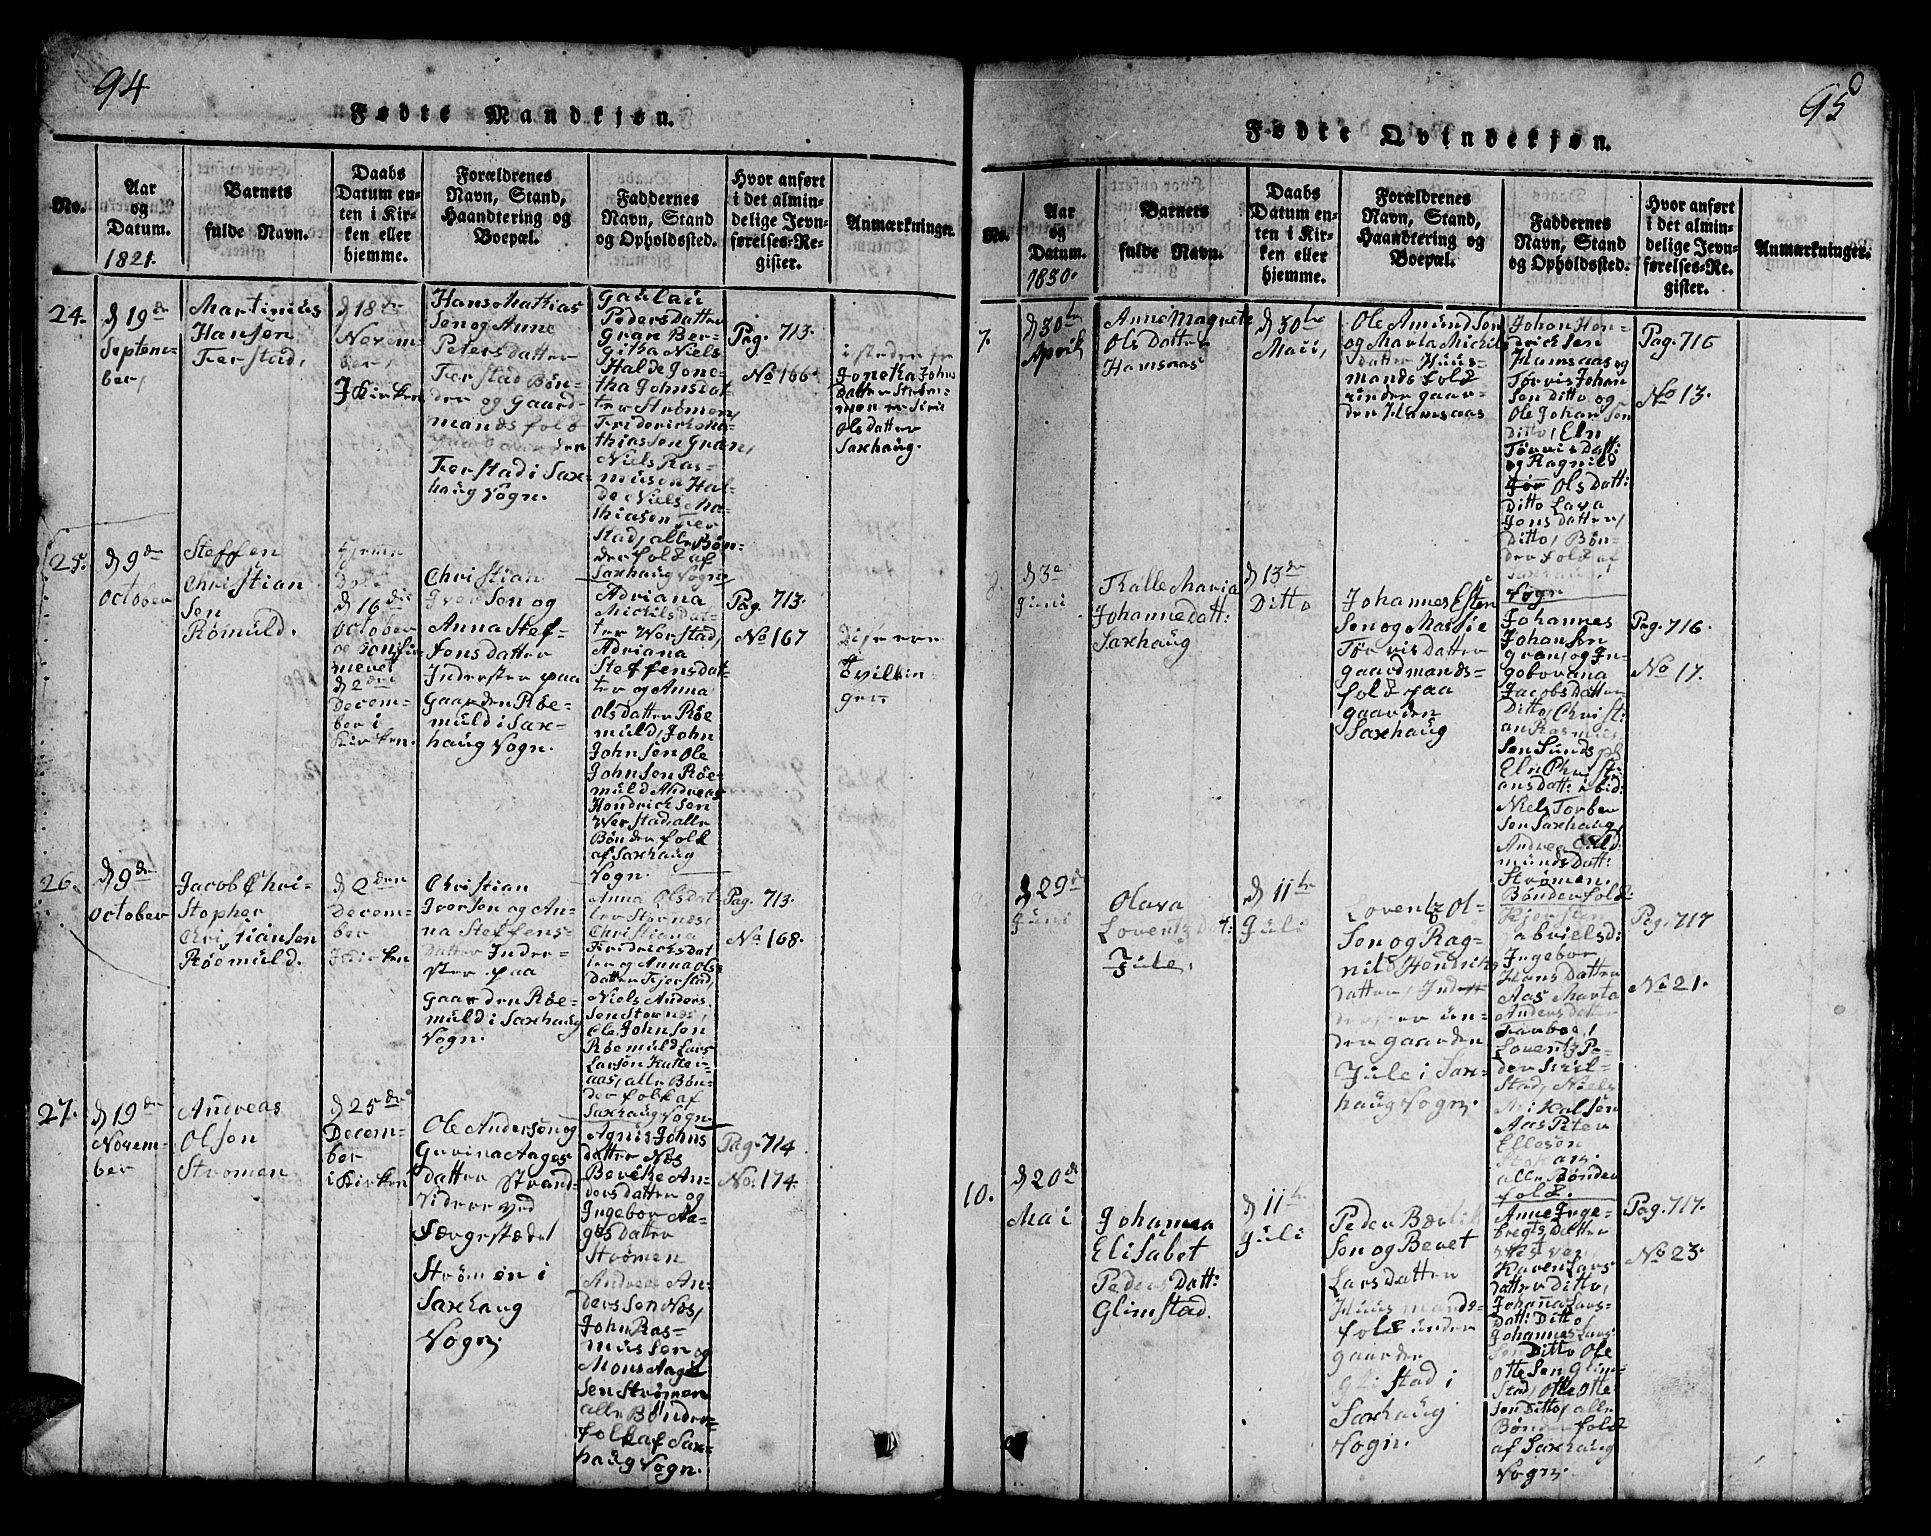 94
Fødte Mandkjøn.
No.
Aar
og
Datum.
1821.
Barnets
fulde Navn.
Daabs
Datum en-
ten i Kir-
ken eller
hjemme.
Forældrenes
Navn, Stand,
Haandtering og
Boepæl.
Faddernes
Navn, Stand
og Opholdssted.
Hvor anført
i det almin-
delige Jevn-
førelses-Re-
gister.
Anmærkninger.
24.
d 19de
Septem-
ber,
Martinus
Hansen
Ferstad,
d 18de
Novem-
ber,
J Kirken
Hans Mathias
Sen og Anne
Petersdatter
Ferstad Bøn-
der og Gaard-
mandsfolk
Ferstad i Sax-
haug Sogn.
Gaulau
Pedersdatter
Gran Ber-
githa Niels
Halde Jone-
tha Johnsdat-
ter Strømen,
Friderich Ma-
thiassen Gran,
Niels Ras-
musen Hal-
de Niels Ma-
thiasen Fer
Stad, alle Bøn-
derfolk af
Saxhaug Sogn,
Pag. 713.
No 166.
i steden for
Joneka Johns
Datter Strøm-
men er Siri
Ols Datter
Saxhaug.
25.
d 9de
October
Steffen
Christian
Sen
Rømuld.
Hjemme
Døbt
d 16de
October
og Confir
meret
d 2den
Decem-
ber i
Kirken.
Christian
Iversen og
Anna Stef-
fensdatter
Inderster paa
Gaarden Røe-
muld i Sax-
haug Sogn.
Adriana
Mickelsdat-
ter Werstad,
Adriana
Steffensdat-
ter og Anna
Olsdatter Røe
muld, John
Johnsen Ole
Johnsen Røe-
muld Andreas
Hendrichsen
Werstad, alle
Bønderfolk
af Saxhaug
Sogn.
Pag. 713.
No 167
Disse ere
Tvillin-
ger
26.
d 9de
October
Jacob Chri-
Stopher
Christiansen
Røemuld.
d 2den
Decem-
ber
J Kirken
Christian
Iversen og An-
na Steffens-
datter Inder-
ster paa
Gaarden Røe-
muld i Saxhaug
Sogn.
Anna Olsdat-
ter Stornes,
Christiana
Fridrichsdat
ter og Anna Ols-
datter Fjerstad,
Niels Anders
Sen Stornes,
Ole Johnsen
Røemuld Lars
Larsøn Kattei-
aas, alle Bøn-
derfolk af
Saxhaug Sogn.
Pag. 713.
No 168.
27.
d 19de
Novem-
ber
Andreas
Olsen
Strømen
d 25de
Decem-
ber
i Kirken
Ole Andersøn og
Gurina Aages
datter Strand-
Sidere ved
Færgestædet
Strømen i
Saxhaug
Sogn,
Agnis Johns
datter Næs
Bereke An-
dersdatter og
Ingebor Aa-
gesdatter
Strømen
Andreas An-
dersSen Næs,
John Ras-
mussen og
Mons Aage
Sen Strømen
alle Bønder-
folk af Sax-
haug Sogn.
Pag. 714
No. 174.
95
Fødte Qvindekjøn.
No.
Aar
og
Datum.
1830.
Barnets
fulde Navn.
Daabs
Datum en-
ten i Kir-
ken eller
hjemme.
Forældrenes
Navn, Stand,
Haandtering og
Boepæl.
Faddernes
Navn, Stand
og Opholdssted.
Hvor anført
i det almin-
delige Jevn-
førelses-Re-
gister.
Anmærkninger.
7.
d 30te
April
Anne Magrete
Ols Datter
Hamsaas
d 30te
Maii,
Ole Amund Sen
og Marta Mickils
datter Huus-
mandsfolk
under gaar-
den Hamsaas
Johan Hen-
drichsen
Hamsaas og
Tørris Johan
Sen Ditto og
Ole Johan Sen
Ditto, Eln
Tørris Datt:
og Ragnild
Ols Datt:
Ditto Lava
Jons datter,
Ditto, Bøn-
derfolk af
Saxhaug
Sogn
Pag. 716
No 13.
8.
d 3e
Juni
Kalle Maria
Johannesdatt:
Saxhaug
d 13de
Ditto
Johannes Esten
Sen og Massie
Tørris Datter
gaardmands-
folk paa
gaarden
Saxhaug
Johannes
Johansen
gran, og In-
goborana
Jacobs Datter
Ditto, Christ:
an Rasmus
Sen Sunds pl
Eln Christ-
ans datt: ibid:
Niels Torber
Sen Saxhaug,
Andrea Guld-
munds Datt:
Strømen.
Bønderfolk
Pag. 716
No 17.
d 29de
Juni
Olava
Lorentz Dat:
Jule.
d 11te
Juli
Lorentz Ol-
Sen og Rag-
nild Hendrichs
datter, Ind
derster un-
der gaarden
Jule i Sax-
haug Sogn.
Kjersten
abrielsd:
Ingebor
Hans Datter
Aas Marta
Anders datter
Farboe,
Lorentz Pe-
der Sul-
Stad, Niels
Mikalsen
Aas Peter
Ellesen
alle Bønder
folk.
Pag. 717
No 21.
10.
d 20de
Mai
Johanna
Elisabet
Peders Datt:
Glimstad.
d 11te
Juli
Peder Børlit
Son og Beret
Larsdatter
Huusmands-
folk under
gaarden
Gli Stad i
Saxhaug
Sogn.
Anne Inge-
bregts Datter
Karen Lars
datter Ditto,
Johanna Lars-
Datt: Ditto
Johannes Lars
Sen Ditto Ole
Otte Sen Glim-
Stad, Otte Otte-
Sen Ditto, alle
Bønderfolk
af Saxhaug
Sogn.
Pag. 717.
No 23.